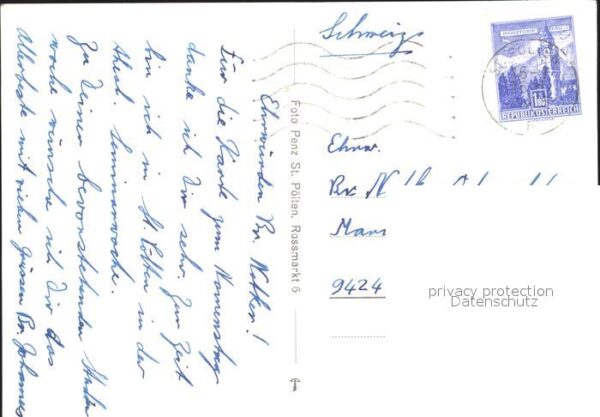 Ehrwürden Br. Notker!
Für die Karte zum Namenstag
danke ich Dir sehr. Zur Zeit
bin ich in St. Pölten in der
theol. Seminarwoche.
Zu Deinen bevorstehenden
woche wünsche ich Dir das
Allerbeste mit vielen Grüssen Br. Johannes
Foto Penz St. Pölten, Rossmarkt 6
Schweiz
1.80
REPUBLIK ÖSTERREICH
Ehrw.
Br.
9424
privacy protection
Datenschutz